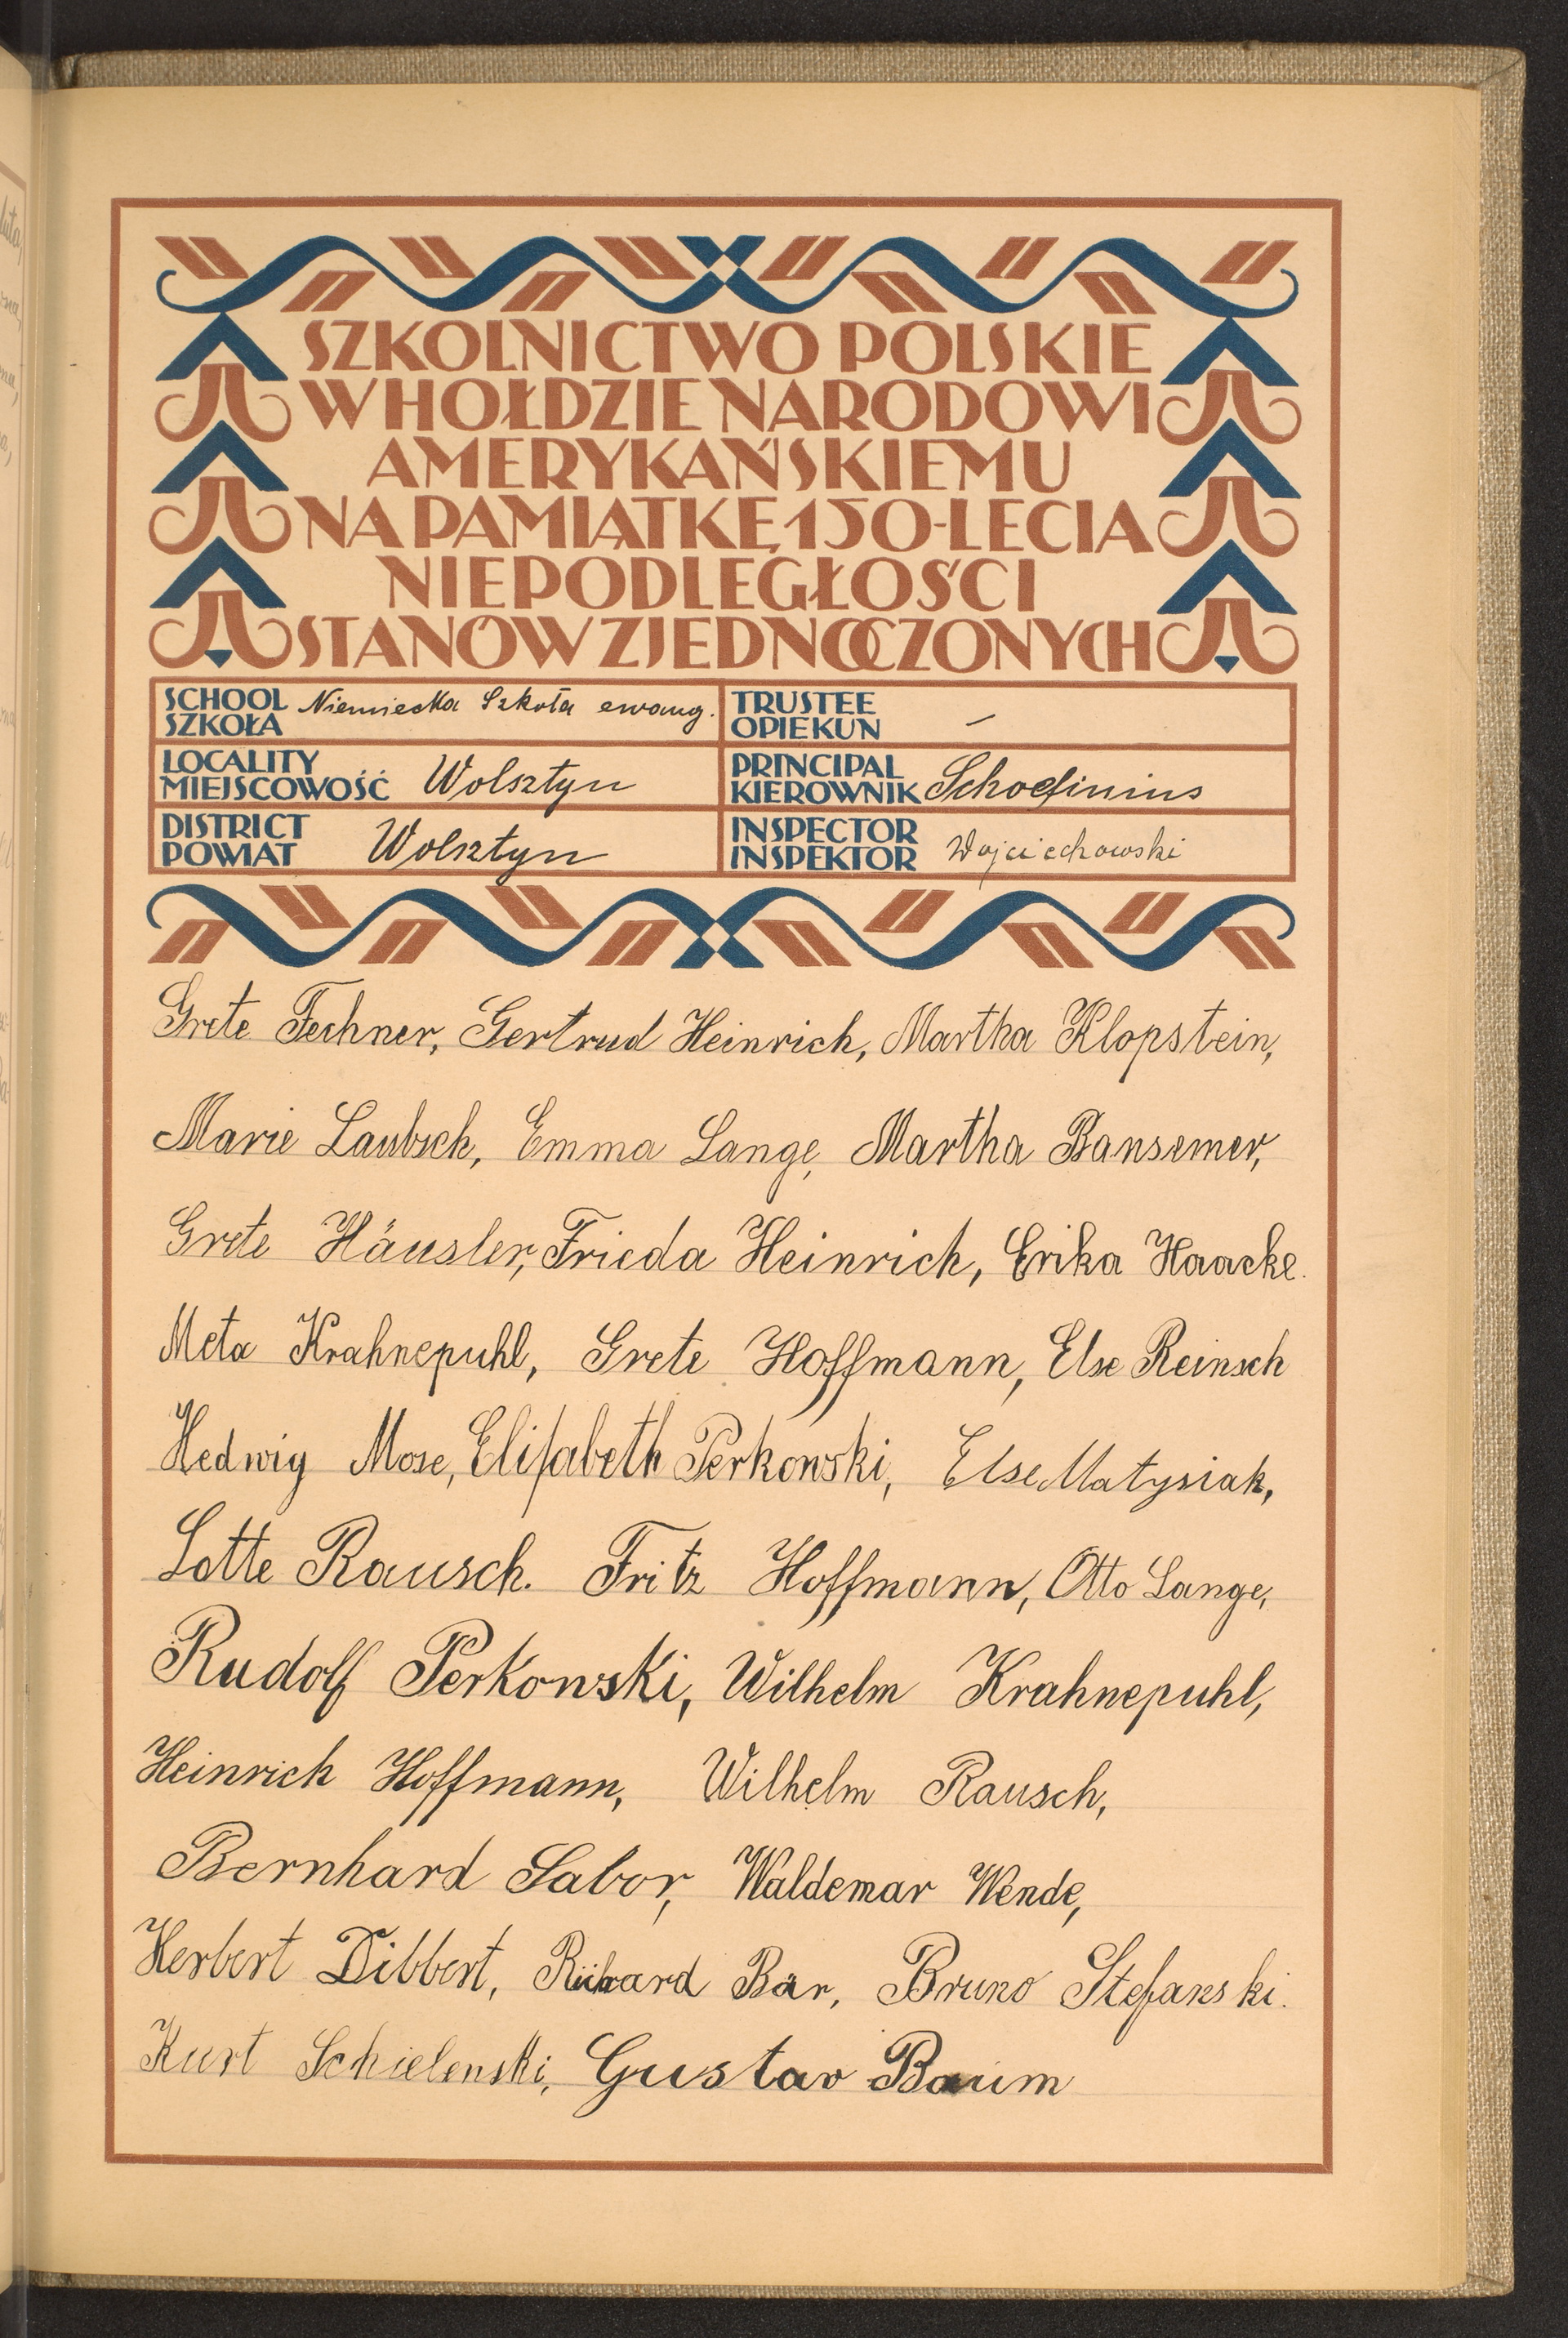 SZKOLNICTWO POLSKIE
W HOŁDZIE NARODOWI
AMERYKAŃSKIEMU
NA PAMIĄTKĘ 150-LECIA
NIEPODLEGŁOŚCI
STANÓW ZJEDNOCZONYCH
SCHOOL SZKOŁA Niemiecka Szkoła ewang.
TRUSTEE OPIEKUN –
LOCALITY MIEJSCOWOŚĆ Wolsztyn
PRINCIPAL KIEROWNIK
DISTRICT POWIAT Wolsztyn
INSPECTOR INSPEKTOR Wojciechowski
Grete Fechner, Gertrud Heinrich, Martha Klopstein,
Marie Laubsch, Emma Lange, Martha Bansemer,
Grete Häusler, Frieda Heinrich, Erika Haacke.
Meta Krahnepuhl, Grete Hoffmann, Else Reinsch
Hedwig Mose, Eliſabeth Perkowski, Else Matysiak,
Lotte Rausch. Fritz Hoffmann, Otto Lange,
Rudolf Perkowski, Wilhelm Krahnepuhl,
Heinrich Hoffmann, Wilhelm Rausch,
Bernhard Sabor, Waldemar Wende,
Herbert Dibbert, Richard Bär, Bruno Stefanski.
Kurt Schielenski, Gustav Baum